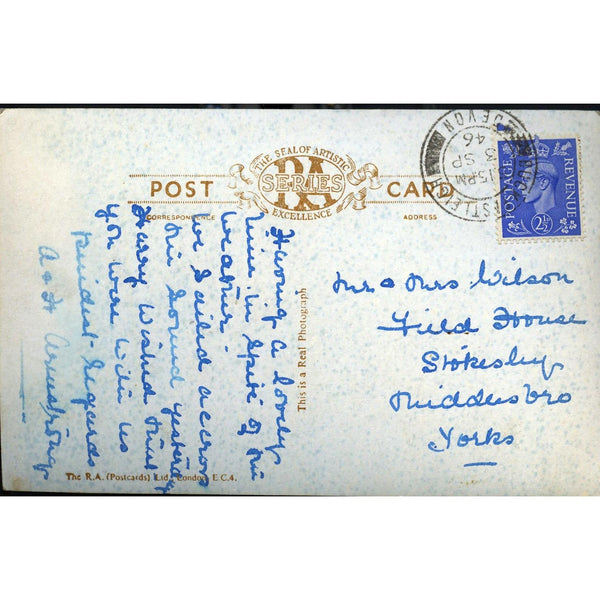 THE SEAL OF ARTISTIC
RA
SERIES
EXCELLENCE
POST CARD
CORRESPONDENCE
ADDRESS
Having a lovely
time in spite of the
weather
we sailed across
the Sound yesterday
Harry wished that
you were with us
Kindest Regards
A & H Armstrong
This is a Real Photograph
Mr & Mrs Wilson
Field House
Stokesley
Middlesbro
Yorks
POSTAGE
REVENUE
2½
DEVON
15 PM
SP
46
The R.A. (Postcards) Ltd. London E.C.4.